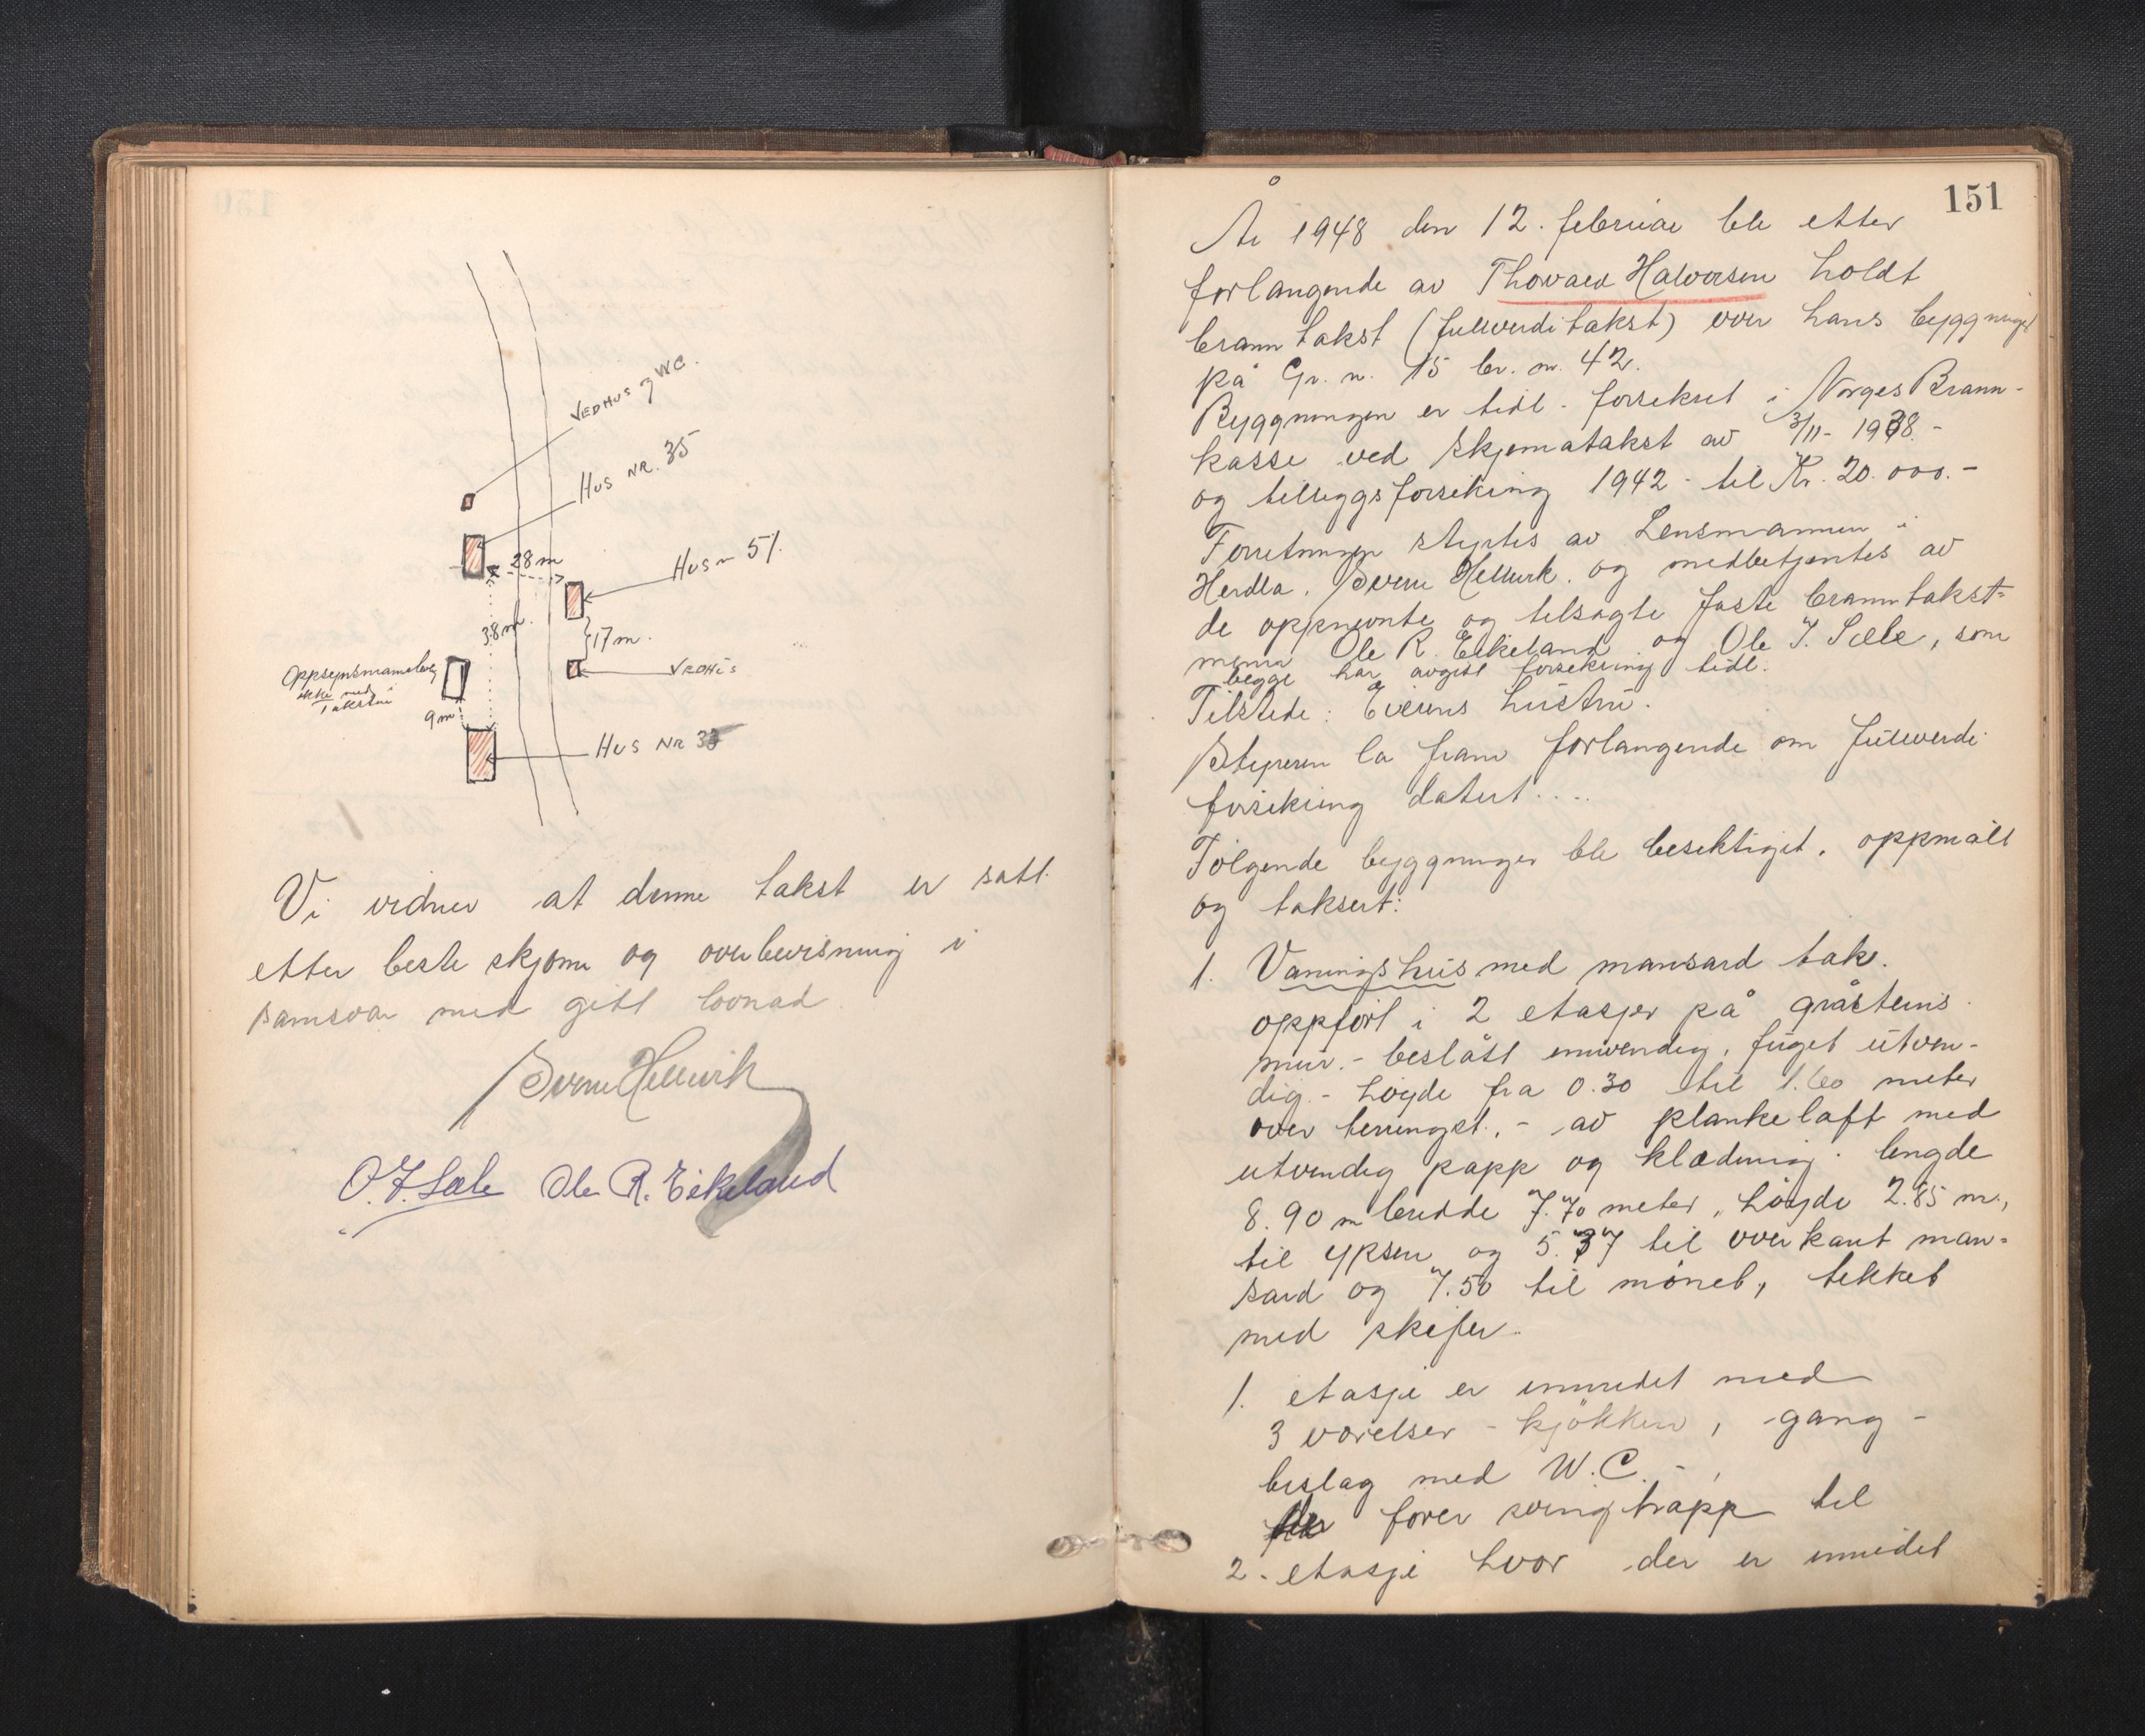 VEDHUS og WC.
HUS NR. 35
28 m
HUS nr 51.
38 m.
17 m.
Oppsynsmannsbolig
ikke med
i taksten
VEDHUS
9 m
HUS NR 33
Vi vidner at denne takst er satt
etter beste skjønn og overbevisning i
samsvar med gitt lovnad.
Sverre Hellevik
O. J. Sæle Ole R. Eikeland
151
År 1948 den 12. februar ble etter
forlangende av Thorvald Halvorsen holdt
branntakst (fullverditakst) over hans byggninger
på Gr. n. 15 br. nr. 42.
Byggningen er tidl. forsikret i Norges Brann-
kasse ved skjematakst av 3/11- 1938.-
og tilleggsforsikring 1942 - til Kr. 20.000.-
Forretningen styrtes av Lensmannen i
Herdla, Sverre Hellevik. og medbetjentes av
de oppnevnte og tilsagte faste branntakst-
menn Ole R. Eikeland og Ole J. Sæle, som
begge har avgitt forsikring tidl.
Tilstede: Eierens hustru.
Styreren la fram forlangende om fullverdi
forsikring datert ....
Følgende byggninger ble besiktiget, oppmålt
og taksert:
1. Vaningshus med mansard tak.
oppført i 2 etasjer på gråsteins
mur. - beslått innvendig, fuget utven-
dig. - høyde fra 0.30 til 1.60 meter
over terrenget. - av plankelaft med
utvendig papp og klædning. lengde
8.90 m bredde 7.70 meter, høyde 2.85 m.,
til ypsen og 5.37 til overkant man-
sard og 7.50 til mønet, tekket
med skifer.
1. etasje er innredet med
3 værelser - kjøkken, gang -
beslag med W.C. -
fører svingtrapp til
2. etasje hvor der er innredet